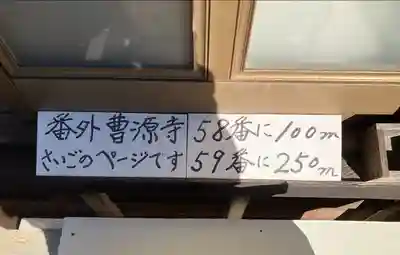 番外曹源寺
さいごのページです
58番に100m
59番に250m